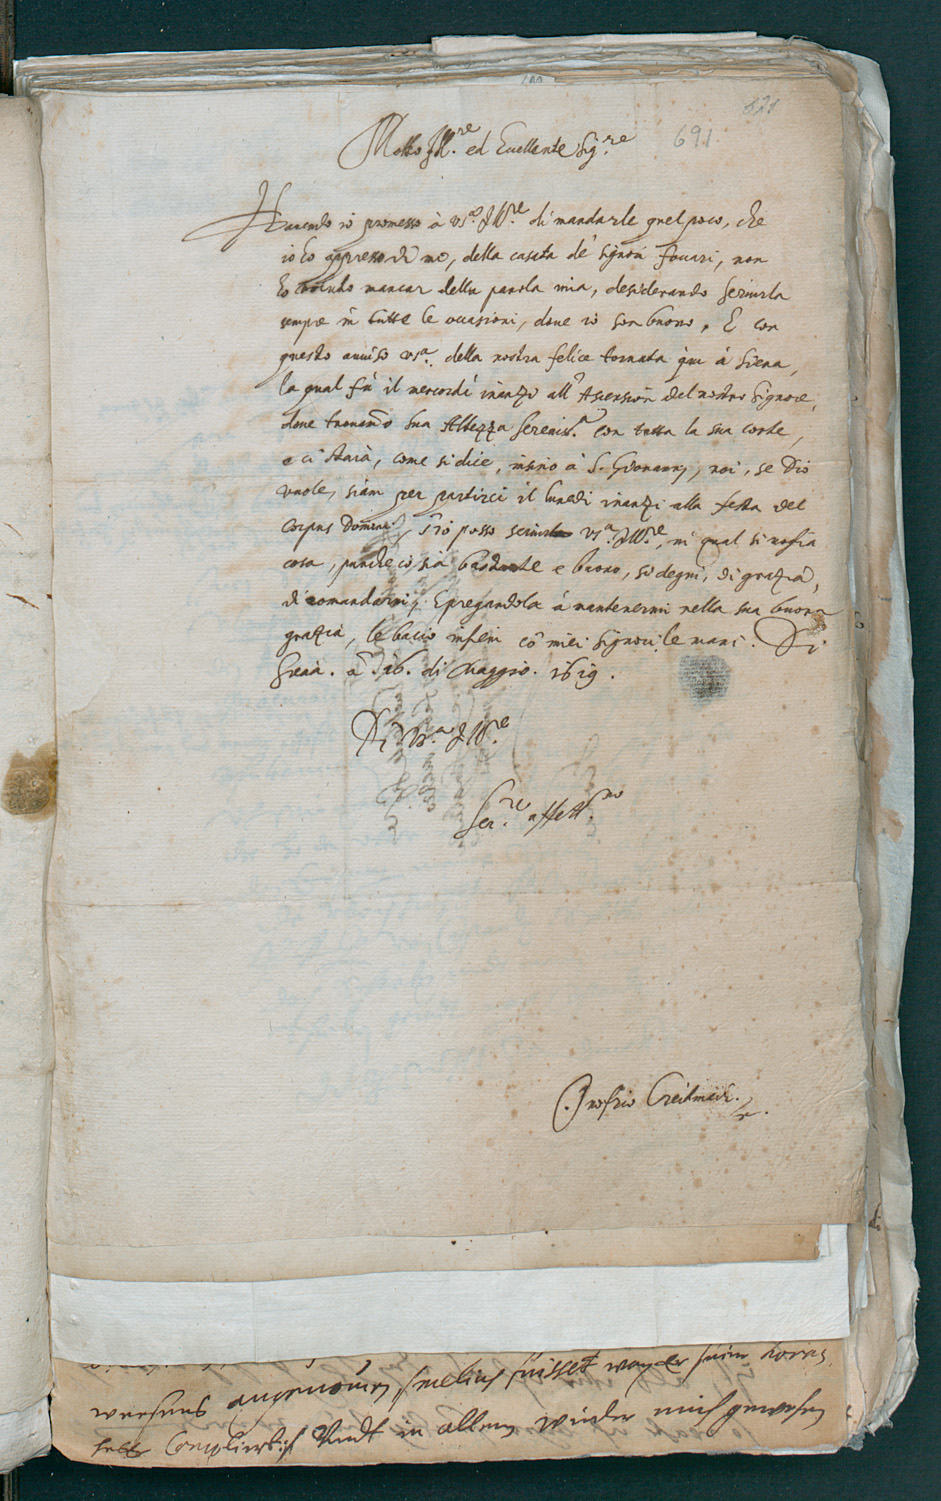 621
691
Molto Ill.re ed Eccellente Sig.re
Havendo io promesso à vs.a Ill.re di mandarle quel poco, che
io ho appresso di me, della casata de' Signori Foccari, non
ho voluto mancar della parola mia, desiderando servirla
sempre in tutte le occasioni, dove io son buono. E con
questo avviso vs.a della nostra felice tornata qui à Siena,
la qual fù il mercordi inanzi all' Ascension del nostro Signore,
dove trovamo sua Altezza Sereniss.a con tutta la sua corte,
e ci starà, come si dice, insino à S. Giovanni, noi, se Dio
vuole, siam per partirci il lunedi inanzi alla festa del
Corpus Domini. S'io posso servir vs.a Ill.re, in qual si voglia
cosa, purche io sia bastante e buono, si degni, di grazia,
di comandarmi. E pregandola à mantenermi nella sua buona
grazia, le bacio insiem cō miei Signori le mani. Di
Siena. a 16. di Maggio. 1619.
Di Vs.a Ill.re
Ser.re affett.mo
Onofrio
in allem wider mich gewesen